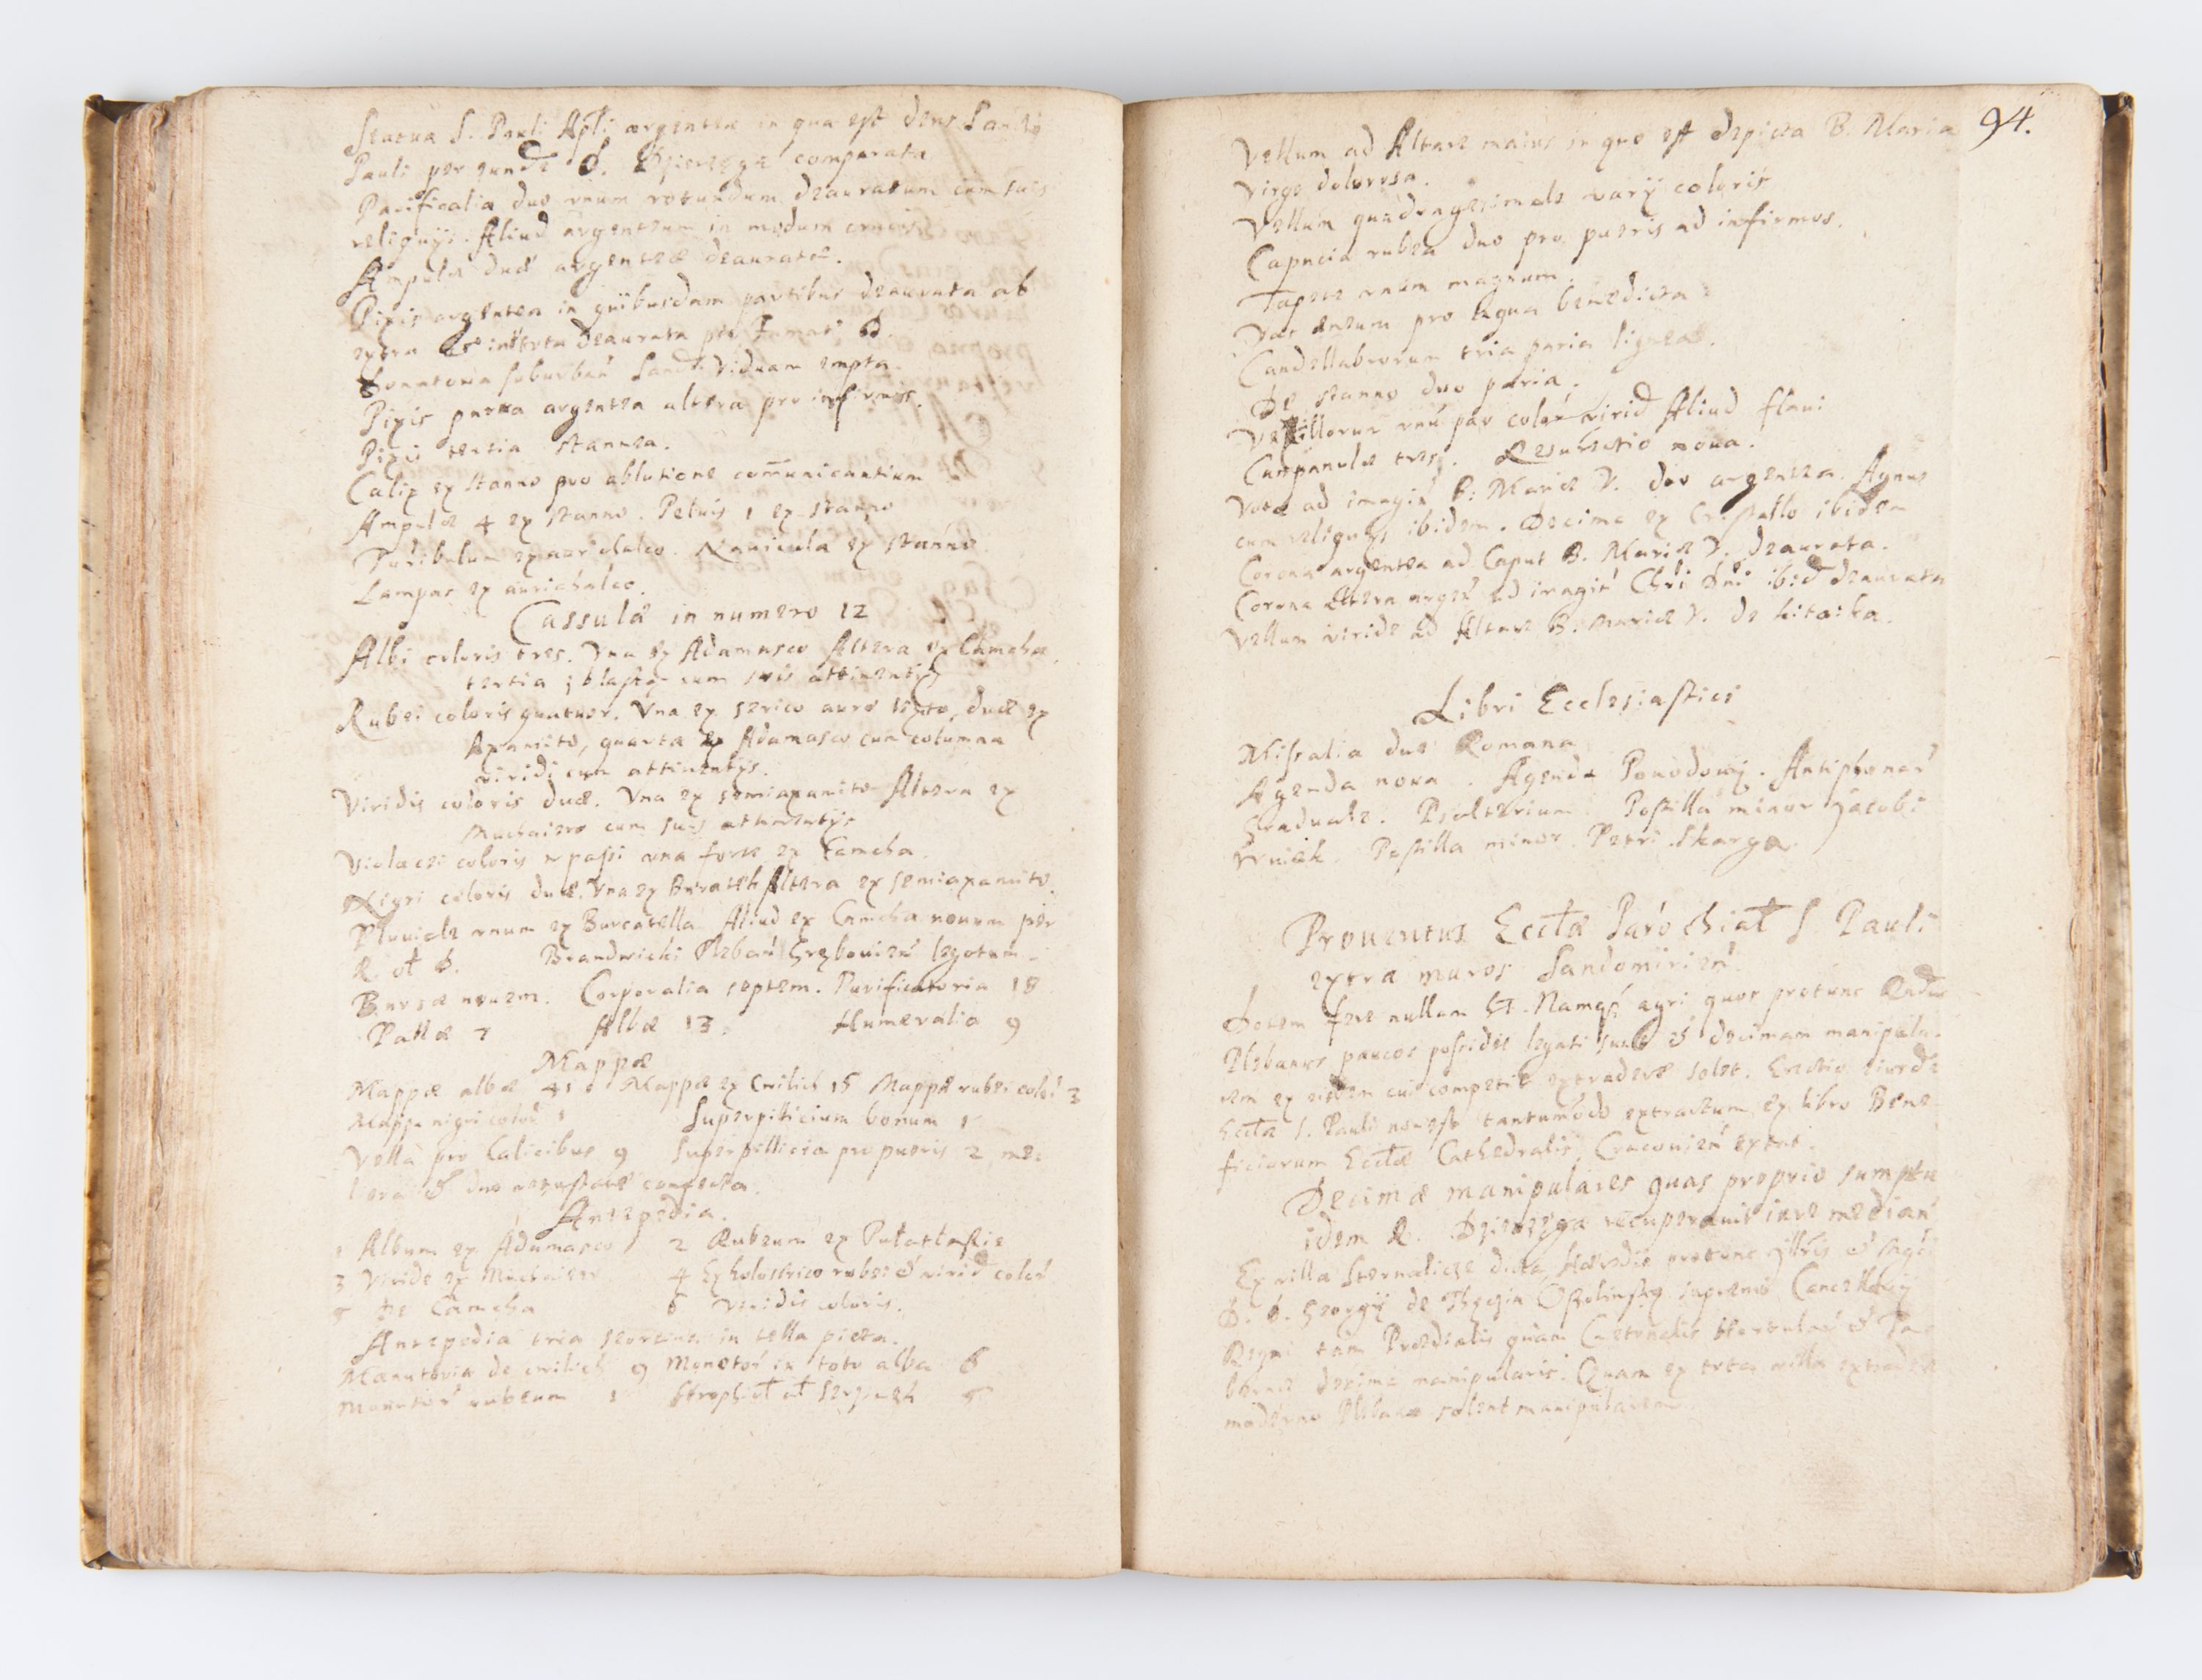 Statua S. Pauli Apli argentea in qua est dens Sancti
Pauli per eund D. Dzierzega comparata
Pacificalia duo unum rotundum deauratum cum suis
reliquijs. Aliud argenteum in modum crucis
Ampulæ duæ argenteæ deauratæ.
Pixis argentea in quibusdam partibus deaurata ab
extra et intus tota deaurata per
suburban Sand. viduam empta.
Pixis parva argentea altera pro infirmis.
Pixis tertia stannea.
Calix ex stanno pro ablutione com̄unicantium
Ampulæ 4 ex stanno. Peluis 1 ex stanno
Turibulum ex aurichalco. Nauicula ex stanno.
Lampas ex aurichalco.
Cassulæ in numero 12
Albi coloris tres. Vna ex Adamasco Altera ex Camcha
tertia ex cum suis attinentijs
Rubei coloris quatuor. Vna ex serico auro texto, duæ ex
Axamito, quarta ex Adamasco cum columna
viridi cum attinentijs.
Viridis coloris duæ. Vna ex semiaxamito Altera ex
Muchaiero cum suis attinentijs
Violacei coloris una forte ex Camcha
Nigri coloris duæ. Vna ex Burateh Altera ex semiaxamito.
Pluuiale unum ex Burcatella Aliud ex Camcha nouum per
R. ol D. Brandwicki Plebań Gręboviẽn legatum.
Bursæ nouem. Corporalia septem. Purificatoria 18
Pallæ 7 Albæ 13. Humeralia 9
Mappæ
Mappæ albæ 41. Mappæ ex Cwilich 15 Mappæ rubei color 3
Mappa nigri color 1 Superpilicium bonum 1
Vella pro Calicibus 9 Superpillicia pro pueris 2 me:
liora & duo uetustate confecta.
Antepedia.
1 Album ex Adamasco 2 Rubeum ex
3 Viride ex Muchaiero 4 Ex holoserico rubei & virid color
5 De Camcha 6 Viridis coloris.
Antepedia tria in tella picta.
Manutoria de cwilich 9 in toto alba 6
rubeum 1 5
94.
Vellum ad Altare maius in quo est depicta B. Maria
Virgo dolorosa.
Vellum quadragesimale varij coloris
Capucia rubea duo pro pueris ad infirmos.
Tapete unum magnum.
Vas æneum pro aqua benedicta
Candellabrorum tria paria lignea.
De stanno duo paria.
Vexillorum unũ par color virid Aliud flaui
Campanulæ tres. Resurectio noua.
Vota ad imagiń B: Mariæ V. duo argentea. Agnus
cum reliquijs ibidem. Decima ex Cristallo ibidem
Corona argentea ad Caput B. Mariæ V. deaurata.
Corona altera argeń ad imagiń Chri Dni ibid deaurata
Vellum viride ad Altare B. Mariæ V. de kitaika.
Libri Ecclesiastici
Missalia duo Romana
Agenda noua. Agenda Powodowij. Antiphonar
Graduale. Psalterium. Postilla minor Jacobi
Wuiek. Postilla minor Petri Skarga.
Prouentus Eccłæ Parochiał S. Pauli
extra muros Sandomirień
Dotem fere nullam Namq agri quos protunc Rndus
Plebanus paucos possidet legati sunt & decimam manipula-
rem ex eisdem cui competit extradere solet. Erectio eiusdē
Eccłæ S. Pauli non est tantumodo extractum ex libro Bene
ficiorum Eccłæ Cathedralis Cracouień extat.
Decimæ manipulares quas proprio sumptu
idem R. Dzierzęga recuperauit iure median
Ex villa dicta protunc Illris & Mgci
D. D. Georgij de Thęczin Ossolinsky supremi Cancellarij
Regni tam Prædialis quam Cmetonalis &
decima manipularis. Quam ex tota villa extradere
moderno Plebano solent manipularem